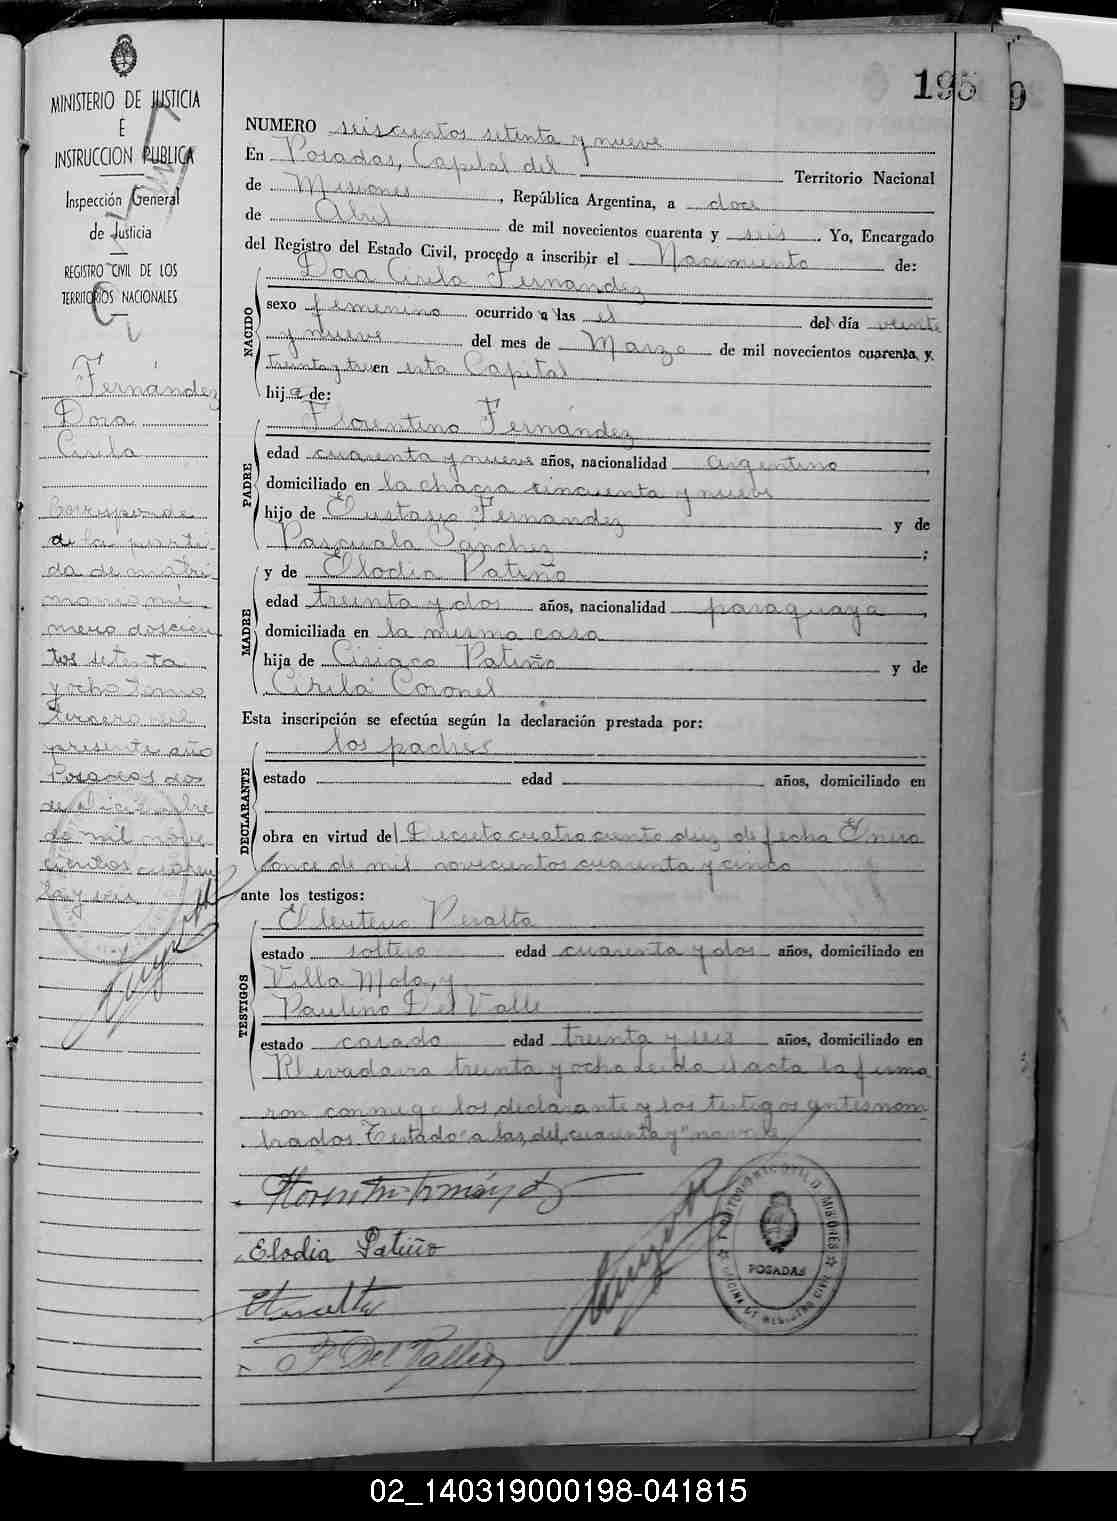 195
9
MINISTERIO DE JUSTICIA
E
INSTRUCCION PUBLICA
Inspección General
de Justicia
REGISTRO CIVIL DE LOS
TERRITORIOS NACIONALES
Fernández
Dora
Cirila
Corresponde
a la parti-
da de matri-
monio nú-
mero doscien-
tos setenta
y ocho Tomo
tercero del
presente año
Posadas dos
de diciembre
de mil nove-
cientos cuaren
ta y seis
NUMERO seiscientos setenta y nueve
En Posadas, Capital del Territorio Nacional
de Misiones, República Argentina, a doce
de Abril de mil novecientos cuarenta y seis. Yo, Encargado
del Registro del Estado Civil, procedo a inscribir el Nacimiento de:
NACIDO
Dora Cirila Fernández
sexo femenino ocurrido a las el del día veinte
y nueve del mes de Marzo de mil novecientos cuarenta y
treinta y tres en esta Capital
hija de:
PADRE
Florentino Fernández
edad cuarenta y nueve años, nacionalidad argentino,
domiciliado en la chacra cincuenta y nueve
hijo de Eustasio Fernandez y de
Pascuala Sanchez;
MADRE
y de Elodia Patiño
edad treinta y dos años, nacionalidad paraguaya,
domiciliada en la misma casa
hija de Ciriaco Patiño y de
Cirila Coronel
Esta inscripción se efectúa según la declaración prestada por:
DECLARANTE
los padres
estado edad años, domiciliado en
obra en virtud del Decreto cuatrociento diez de fecha Enero
once de mil novecientos cuarenta y cinco
ante los testigos:
TESTIGOS
Eleuterio Peralta
estado soltero edad cuarenta y dos años, domiciliado en
Villa Mola, y
Paulino Del Valle
estado casado edad treinta y seis años, domiciliado en
Rivadavia treinta y ocho Leida el acta la firma
ron conmigo los declarante y los testigos antesnom
brados Testado "a las, del, cuarenta y" no vale
Elodia Patiño
P. Del Valle
MISIONES
POSADAS
OFICINA DE REGISTRO CIVIL
02_140319000198-041815